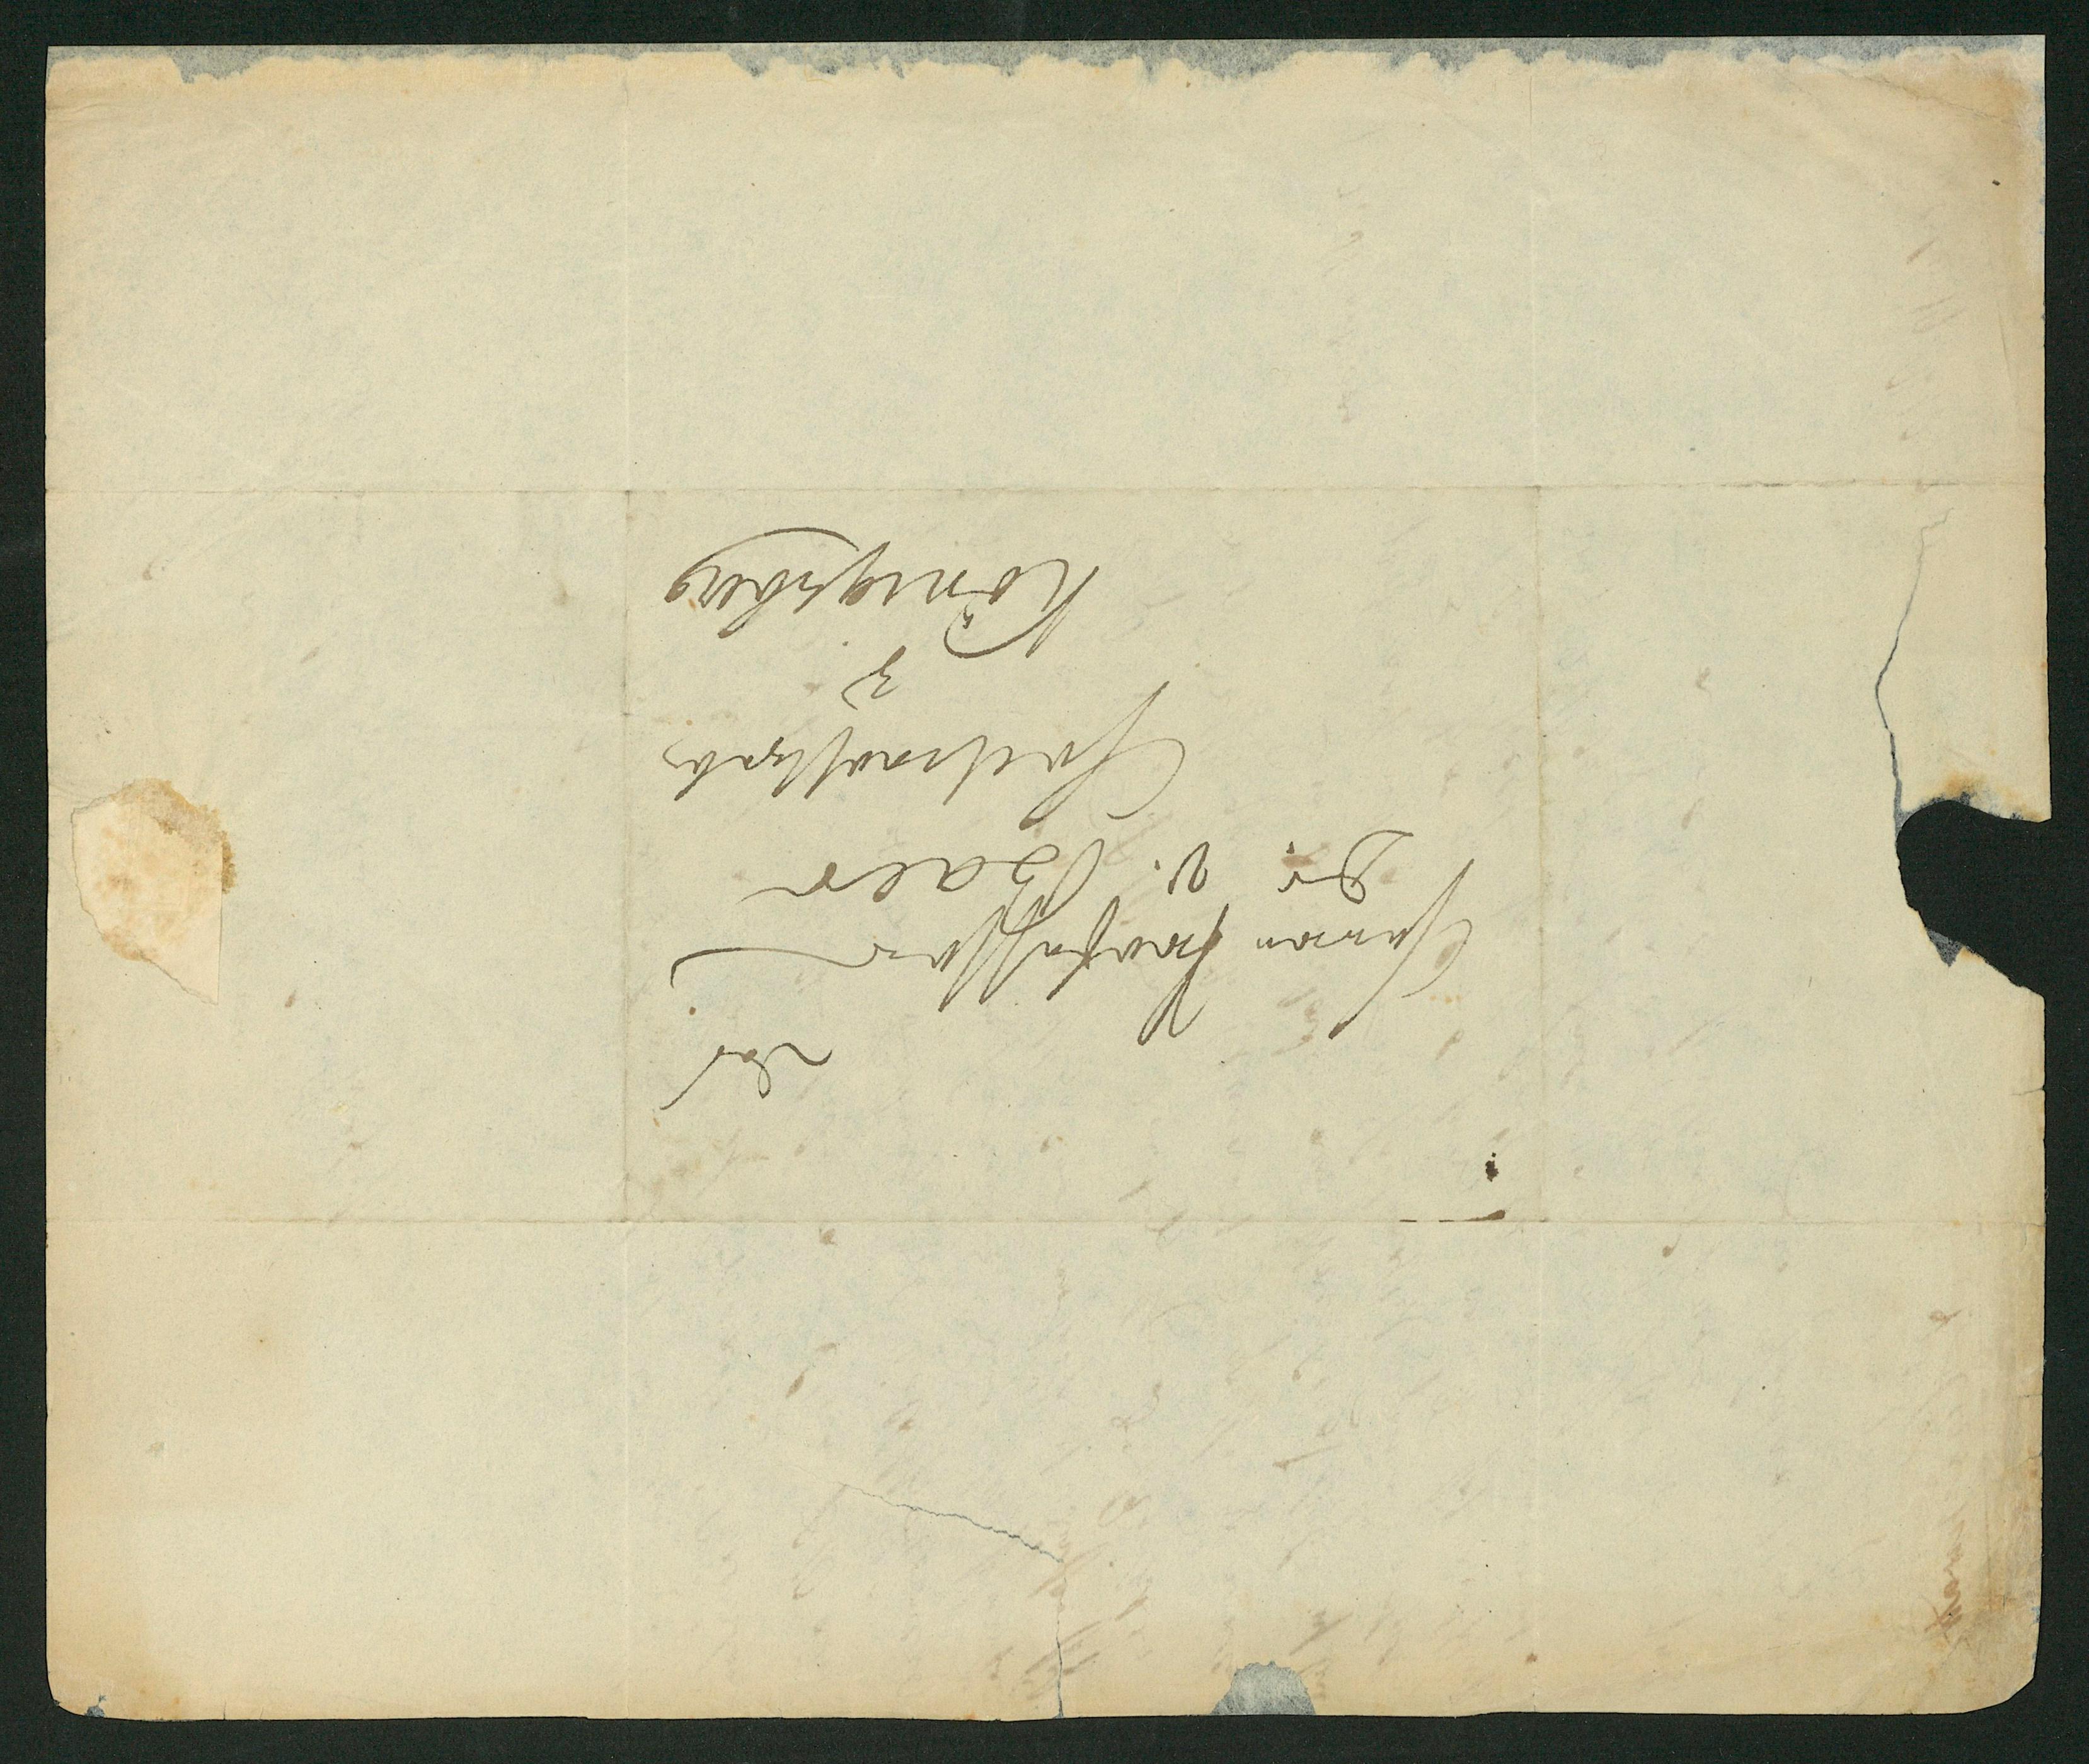 Des
Herrn Professor
Dr. v. Baer
Hochwohlgeb
z
Königsberg